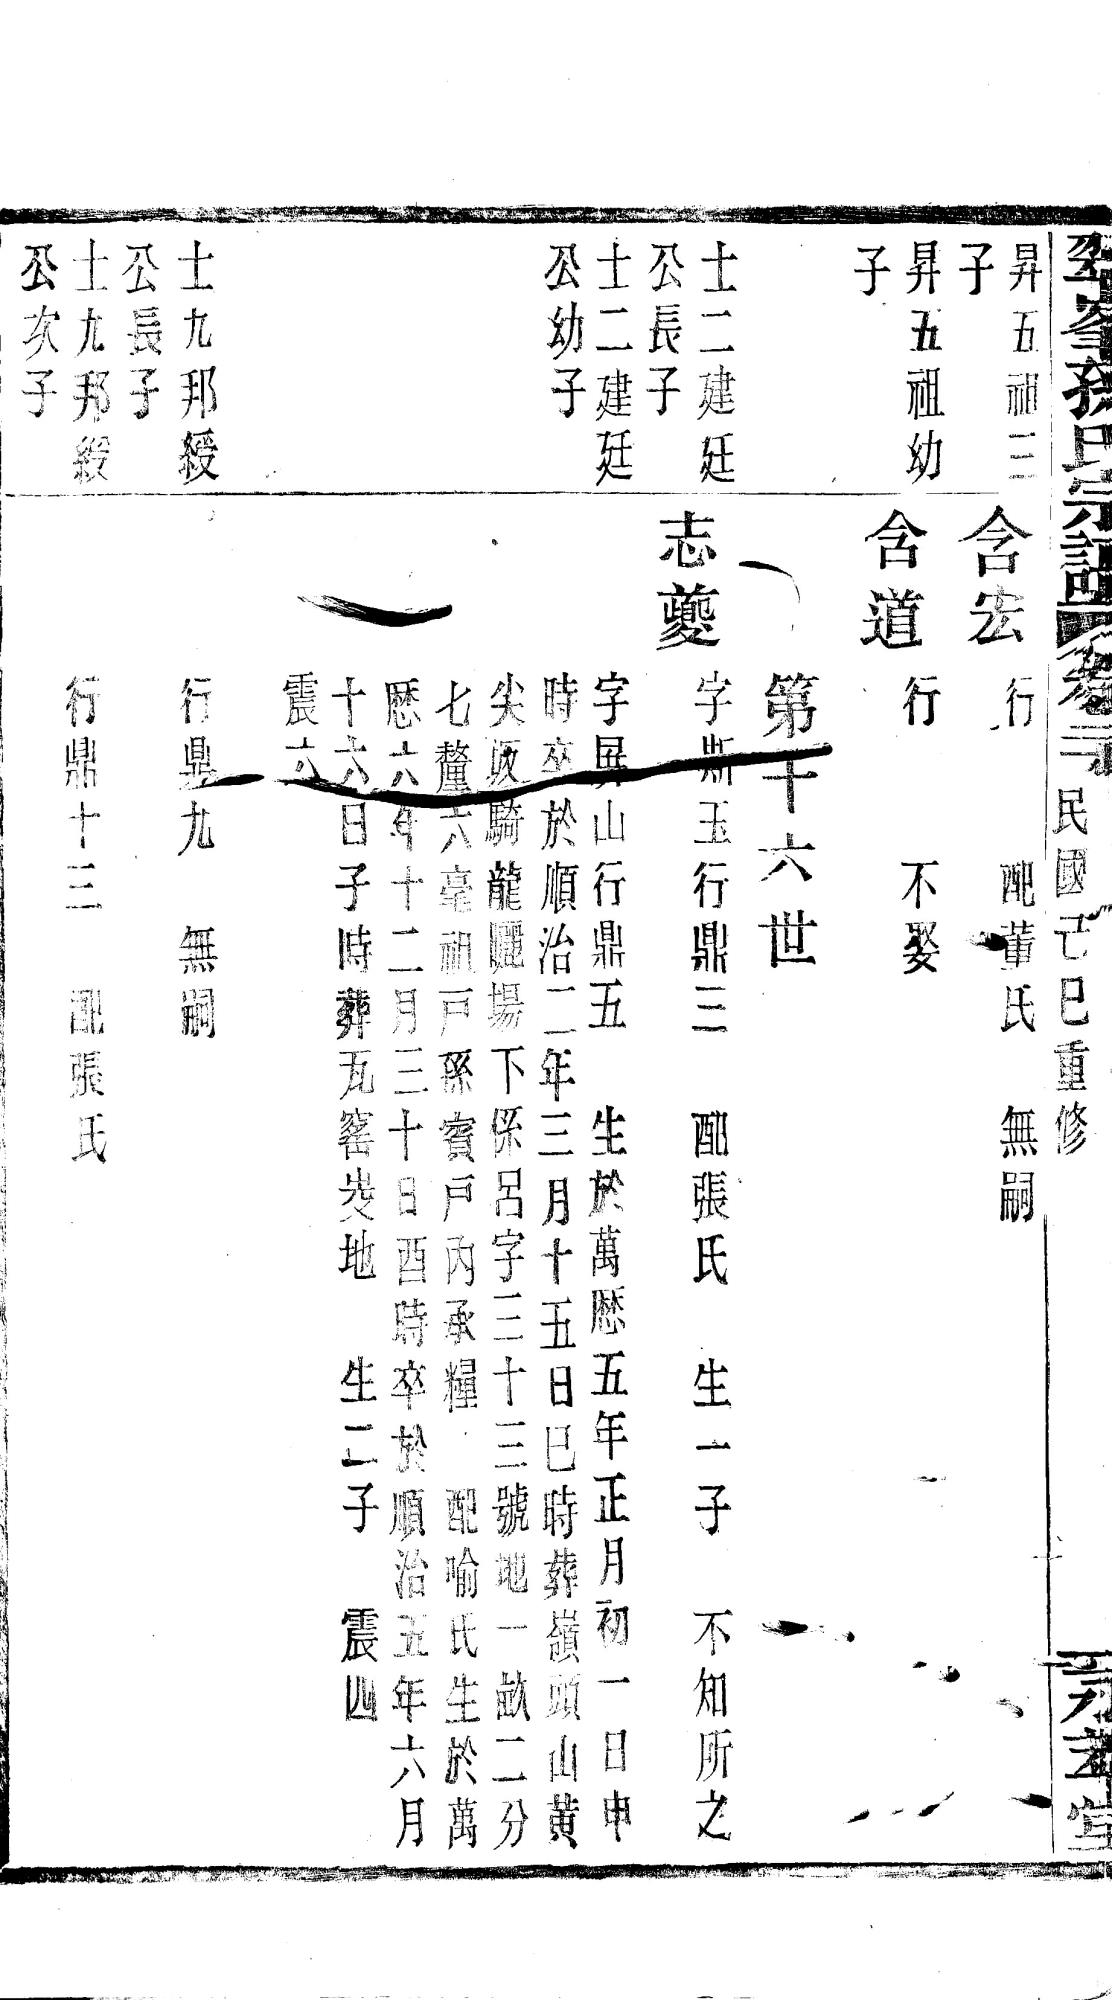 孫氏宗譜 卷二 民國己巳重修
堂
昇五祖三
子
含宏
行 配董氏 無嗣
昇五祖幼
子
含道
行 不娶
第十六世
士二建廷
公長子
志夔
字斯玉行鼎三 配張氏 生一子 不知所之
士二建廷
公幼子
字屏山行鼎五 生於萬厯五年正月初一日申
時卒於順治二年三月十五日巳時葬嶺頭山黃
尖坂騎龍隴塲下係呂字三十三號地一畝二分
七釐六毫祖戸孫賓戸內承糧 配喻氏生於萬
厯六年十二月三十日酉時卒於順治五年六月
十六日子時葬瓦窰㘰地 生二子 震四
震六
士九邦綬
公長子
行鼎九 無嗣
士九邦綬
公次子
行鼎十三 配張氏